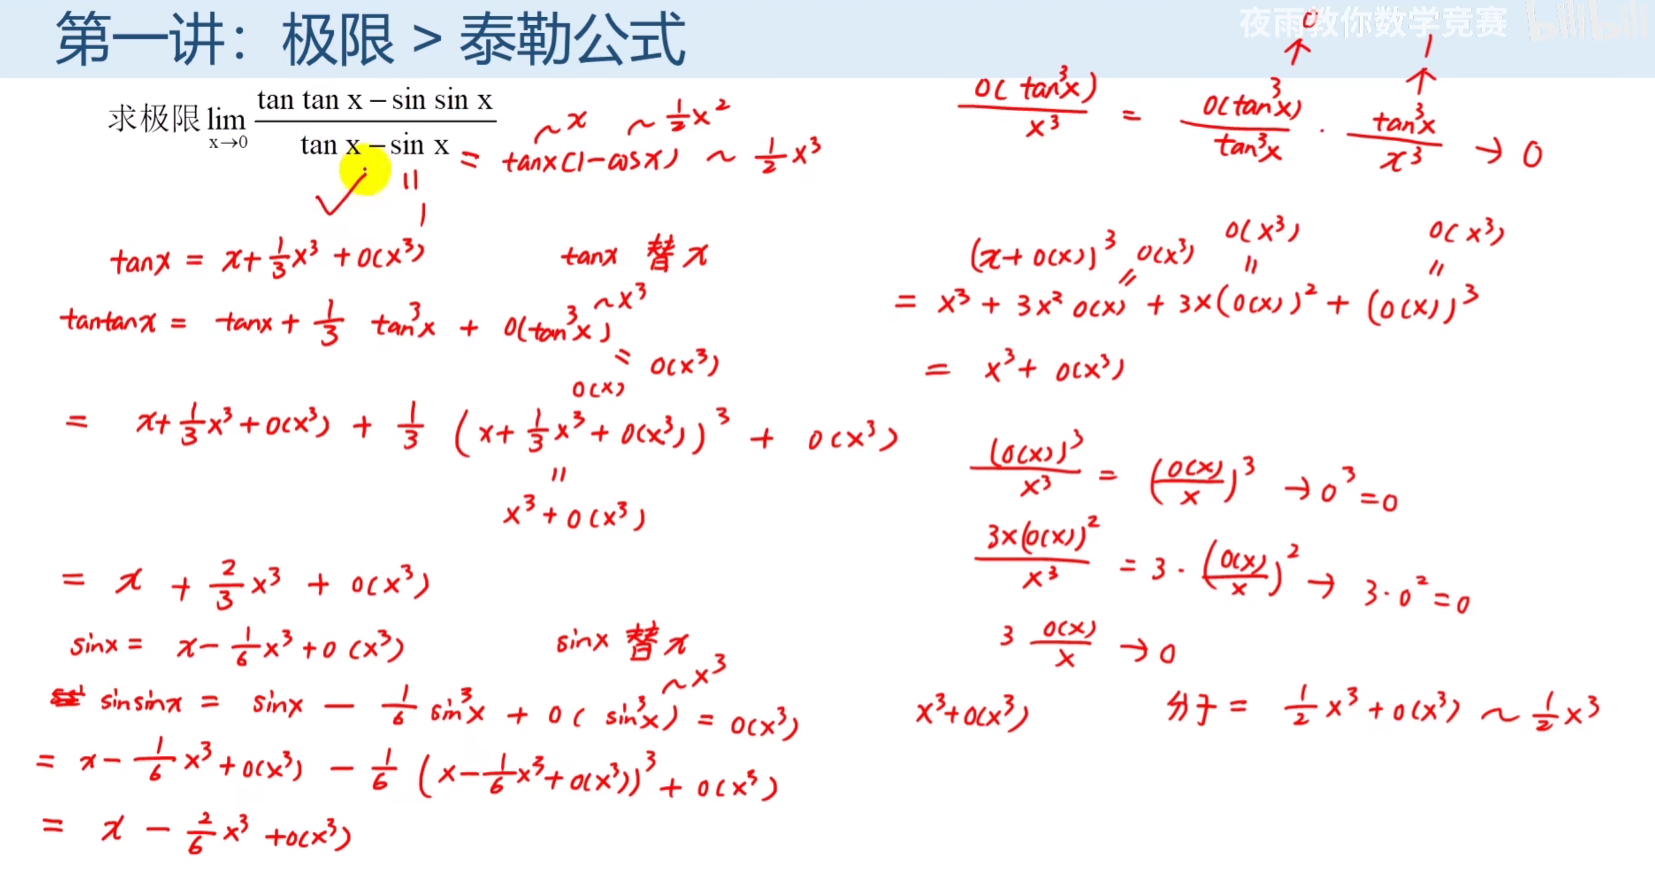 第一讲：极限 > 泰勒公式
夜雨教你数学竞赛 bilibili
求极限 lim x→0 (tan tan x − sin sin x)/(tan x − sin x)
= tanx(1−cosx) ~ 1/2 x³
~x ~ 1/2 x²
✓ 11
1
tanx = x + 1/3 x³ + o(x³) tanx 替 x
tantanx = tanx + 1/3 tan³x + o(tan³x) ~x³
= o(x³)
o(x)
= x + 1/3 x³ + o(x³) + 1/3 (x + 1/3 x³ + o(x³))³ + o(x³)
11
x³ + o(x³)
= x + 2/3 x³ + o(x³)
sinx = x − 1/6 x³ + o(x³) sinx 替 x
sinsinx = sinx − 1/6 sin³x + o(sin³x) = o(x³) ~x³
= x − 1/6 x³ + o(x³) − 1/6 (x − 1/6 x³ + o(x³))³ + o(x³)
= x − 2/6 x³ + o(x³)
0 1
↑ ↑
o(tan³x)/x³ = o(tan³x)/tan³x · tan³x/x³ → 0
(x + o(x))³ o(x³) o(x³) o(x³)
11 11 11
= x³ + 3x² o(x) + 3x(o(x))² + (o(x))³
= x³ + o(x³)
(o(x))³/x³ = (o(x)/x)³ → 0³ = 0
3x(o(x))²/x³ = 3 · (o(x)/x)² → 3·0² = 0
3 o(x)/x → 0
x³+o(x³) 分子 = 1/2 x³ + o(x³) ~ 1/2 x³